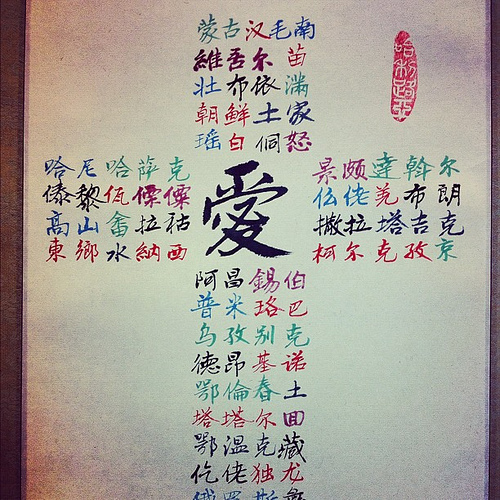 蒙古汉毛南
維吾尔苗
壮布依满
朝鲜土家
瑶白侗怒
哈利路亚
哈尼哈萨克
傣黎佤傈僳
高山畲拉祜
東鄉水納西
愛
景颇達斡尔
仫佬羌布朗
撒拉塔吉克
柯尔克孜京
阿昌錫伯
普米珞巴
乌孜别克
德昂基诺
鄂倫春土
塔塔尔回
鄂温克藏
仡佬独龙
俄罗斯